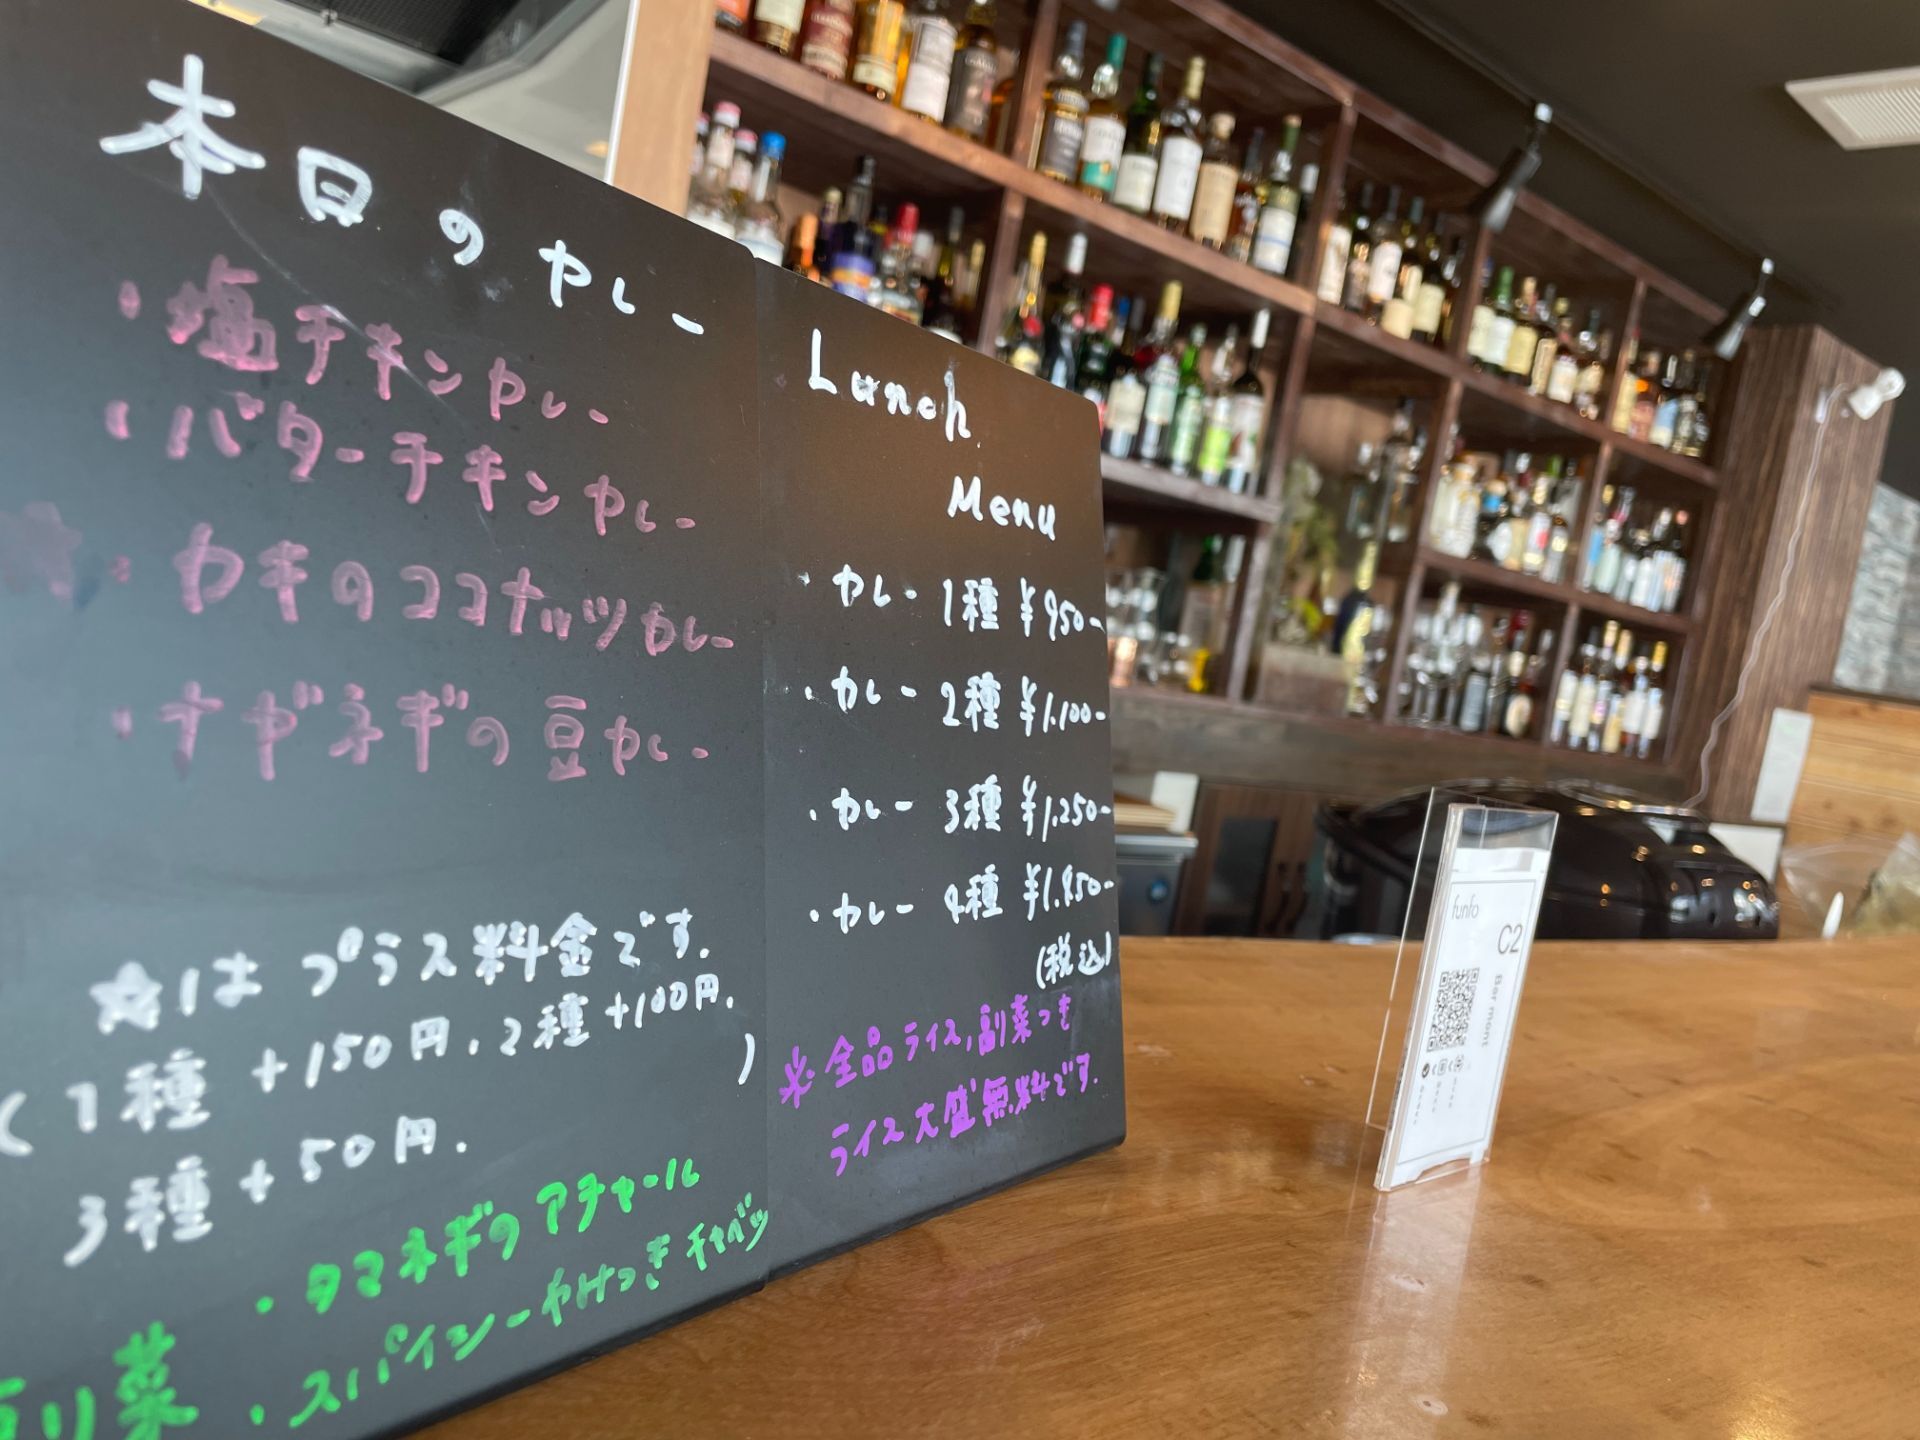 本日のカレー
・塩チキンカレー
・バターチキンカレー
★・カキのココナッツカレー
・ナガネギの豆カレー
☆はプラス料金です.
(1種+150円.2種+100円.
3種+50円.)
副菜
・タマネギのアチャール
・スパイシーやみつきキャベツ
Lunch
Menu
・カレー1種 ¥950-
・カレー 2種 ¥1.100-
・カレー 3種 ¥1.250-
・カレー 4種
(税込)
※全品ライス,副菜つき
ライス大盛無料です.
funfo
C2
Bar mont